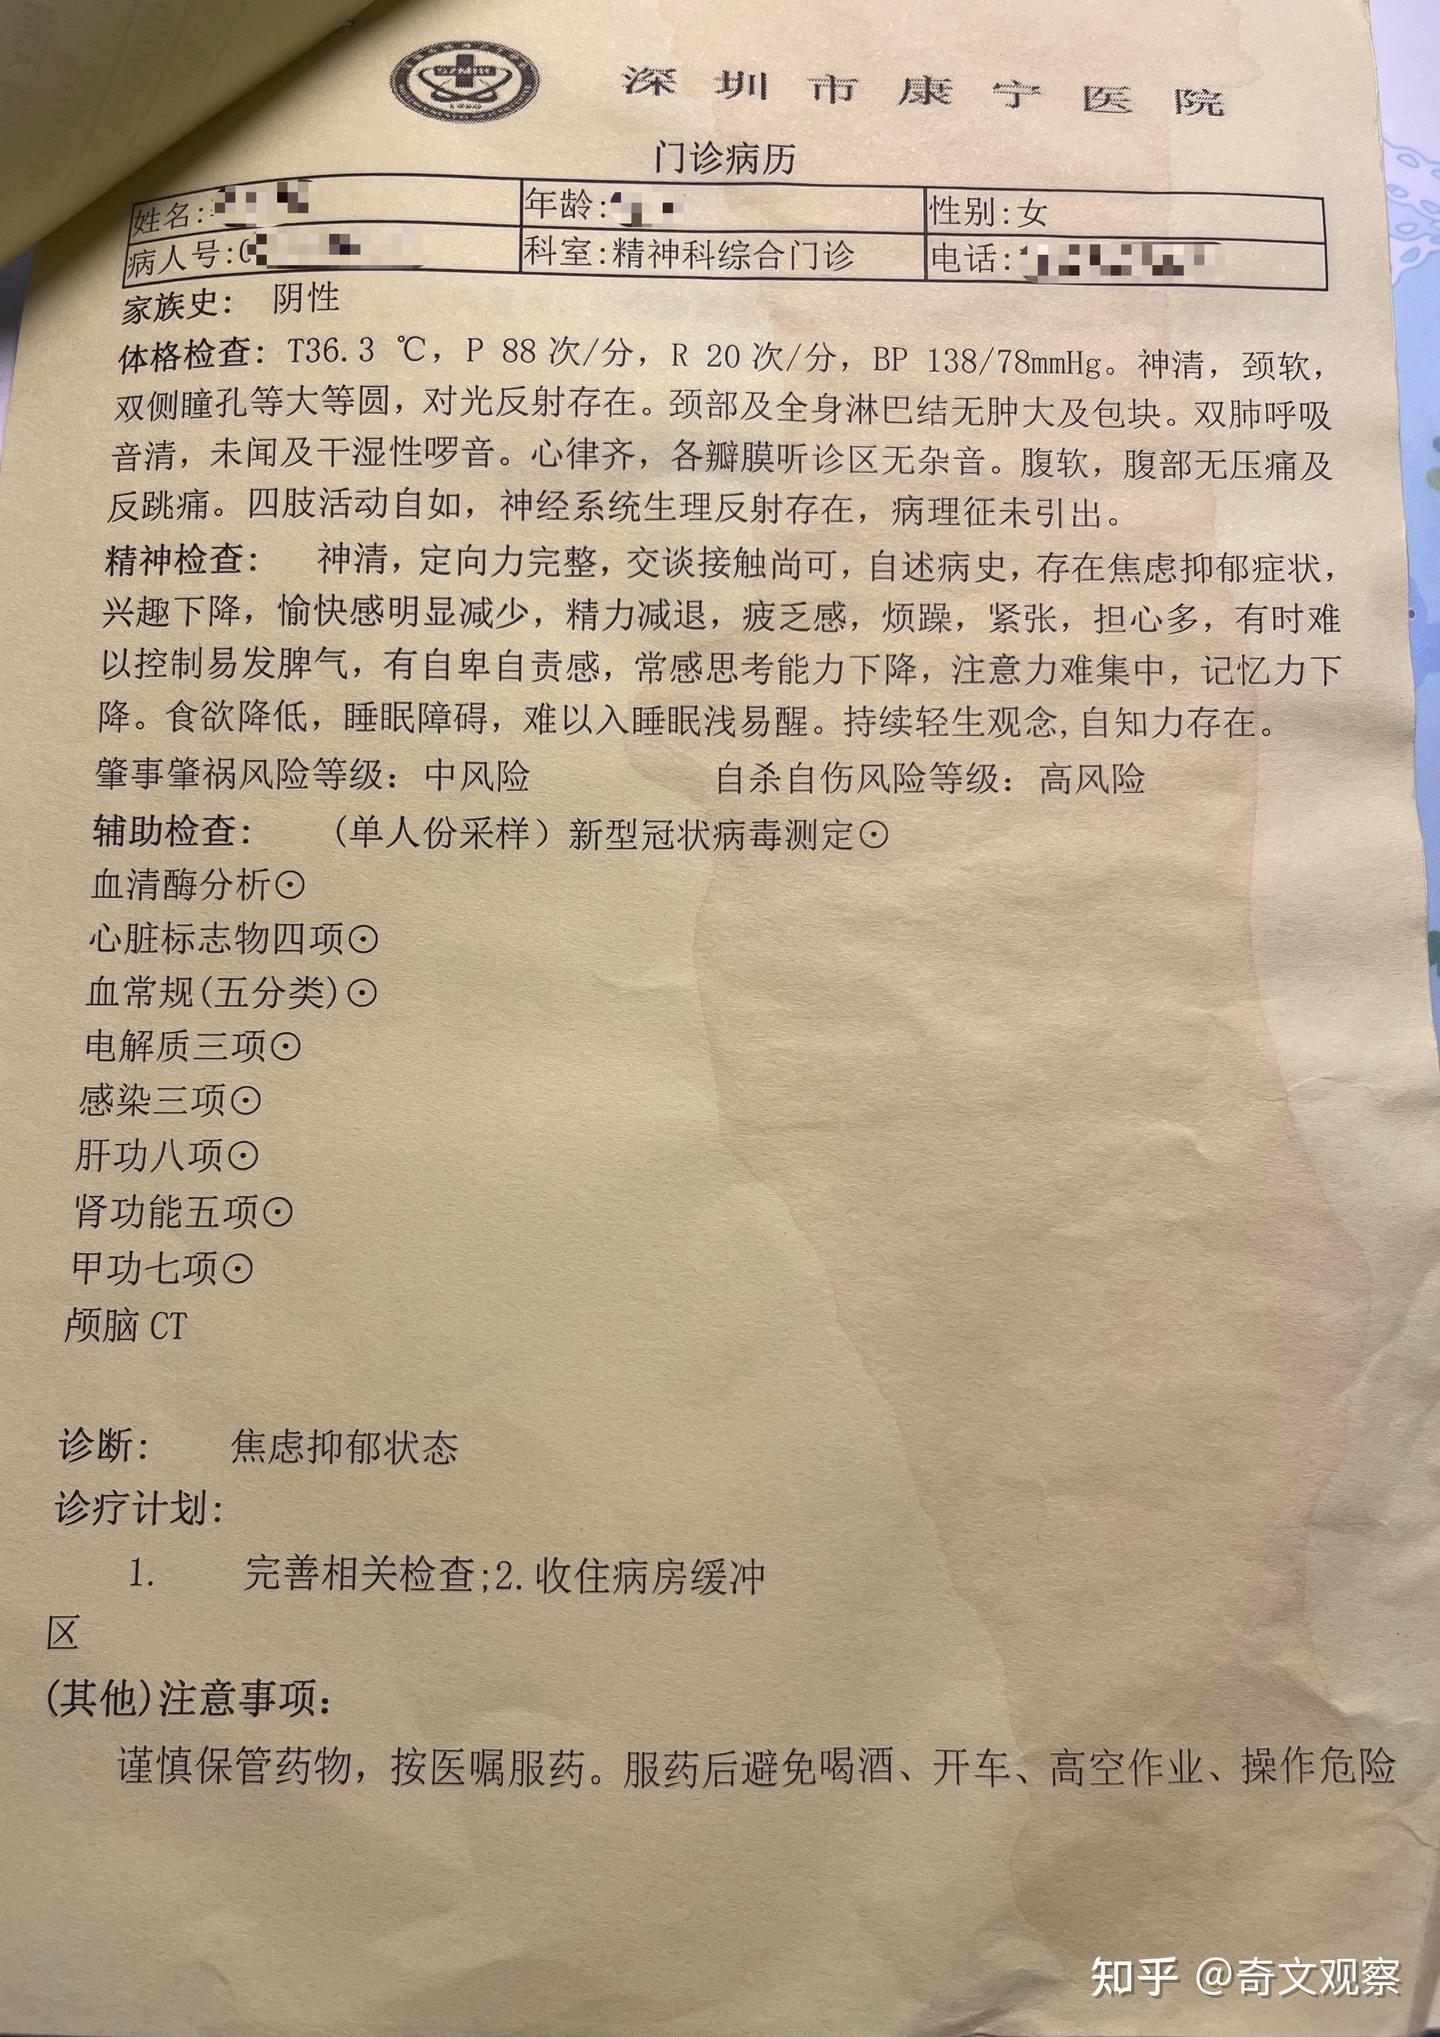 深圳市康宁医院
门诊病历
姓名: 年龄: 性别:女
病人号:0 科室:精神科综合门诊 电话:
家族史: 阴性
体格检查: T36.3 ℃, P 88 次/分, R 20 次/分, BP 138/78mmHg。神清, 颈软,
双侧瞳孔等大等圆, 对光反射存在。颈部及全身淋巴结无肿大及包块。双肺呼吸
音清, 未闻及干湿性啰音。心律齐, 各瓣膜听诊区无杂音。腹软, 腹部无压痛及
反跳痛。四肢活动自如, 神经系统生理反射存在, 病理征未引出。
精神检查: 神清, 定向力完整, 交谈接触尚可, 自述病史, 存在焦虑抑郁症状,
兴趣下降, 愉快感明显减少, 精力减退, 疲乏感, 烦躁, 紧张, 担心多, 有时难
以控制易发脾气, 有自卑自责感, 常感思考能力下降, 注意力难集中, 记忆力下
降。食欲降低, 睡眠障碍, 难以入睡眠浅易醒。持续轻生观念, 自知力存在。
肇事肇祸风险等级: 中风险 自杀自伤风险等级: 高风险
辅助检查: (单人份采样) 新型冠状病毒测定⊙
血清酶分析⊙
心脏标志物四项⊙
血常规(五分类)⊙
电解质三项⊙
感染三项⊙
肝功八项⊙
肾功能五项⊙
甲功七项⊙
颅脑 CT
诊断: 焦虑抑郁状态
诊疗计划:
1. 完善相关检查;2.收住病房缓冲
区
(其他)注意事项:
谨慎保管药物, 按医嘱服药。服药后避免喝酒、开车、高空作业、操作危险
知乎 @奇文观察